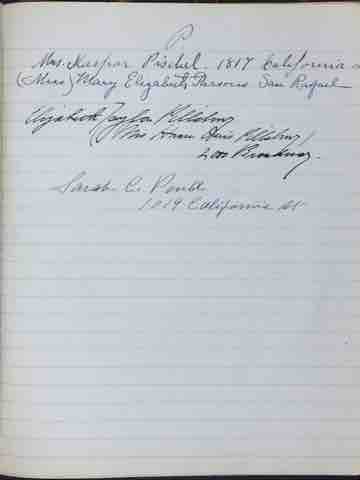 P
Mrs. Kaspar Pischel. 1817 California
(Miss) Mary Elizabeth Parsons San Rafael
Elizabeth Taylor Pillsbury
(Mrs Horace Davis Pillsbury)
2000 Broadway.
Sarah C. Pond
1019 California St